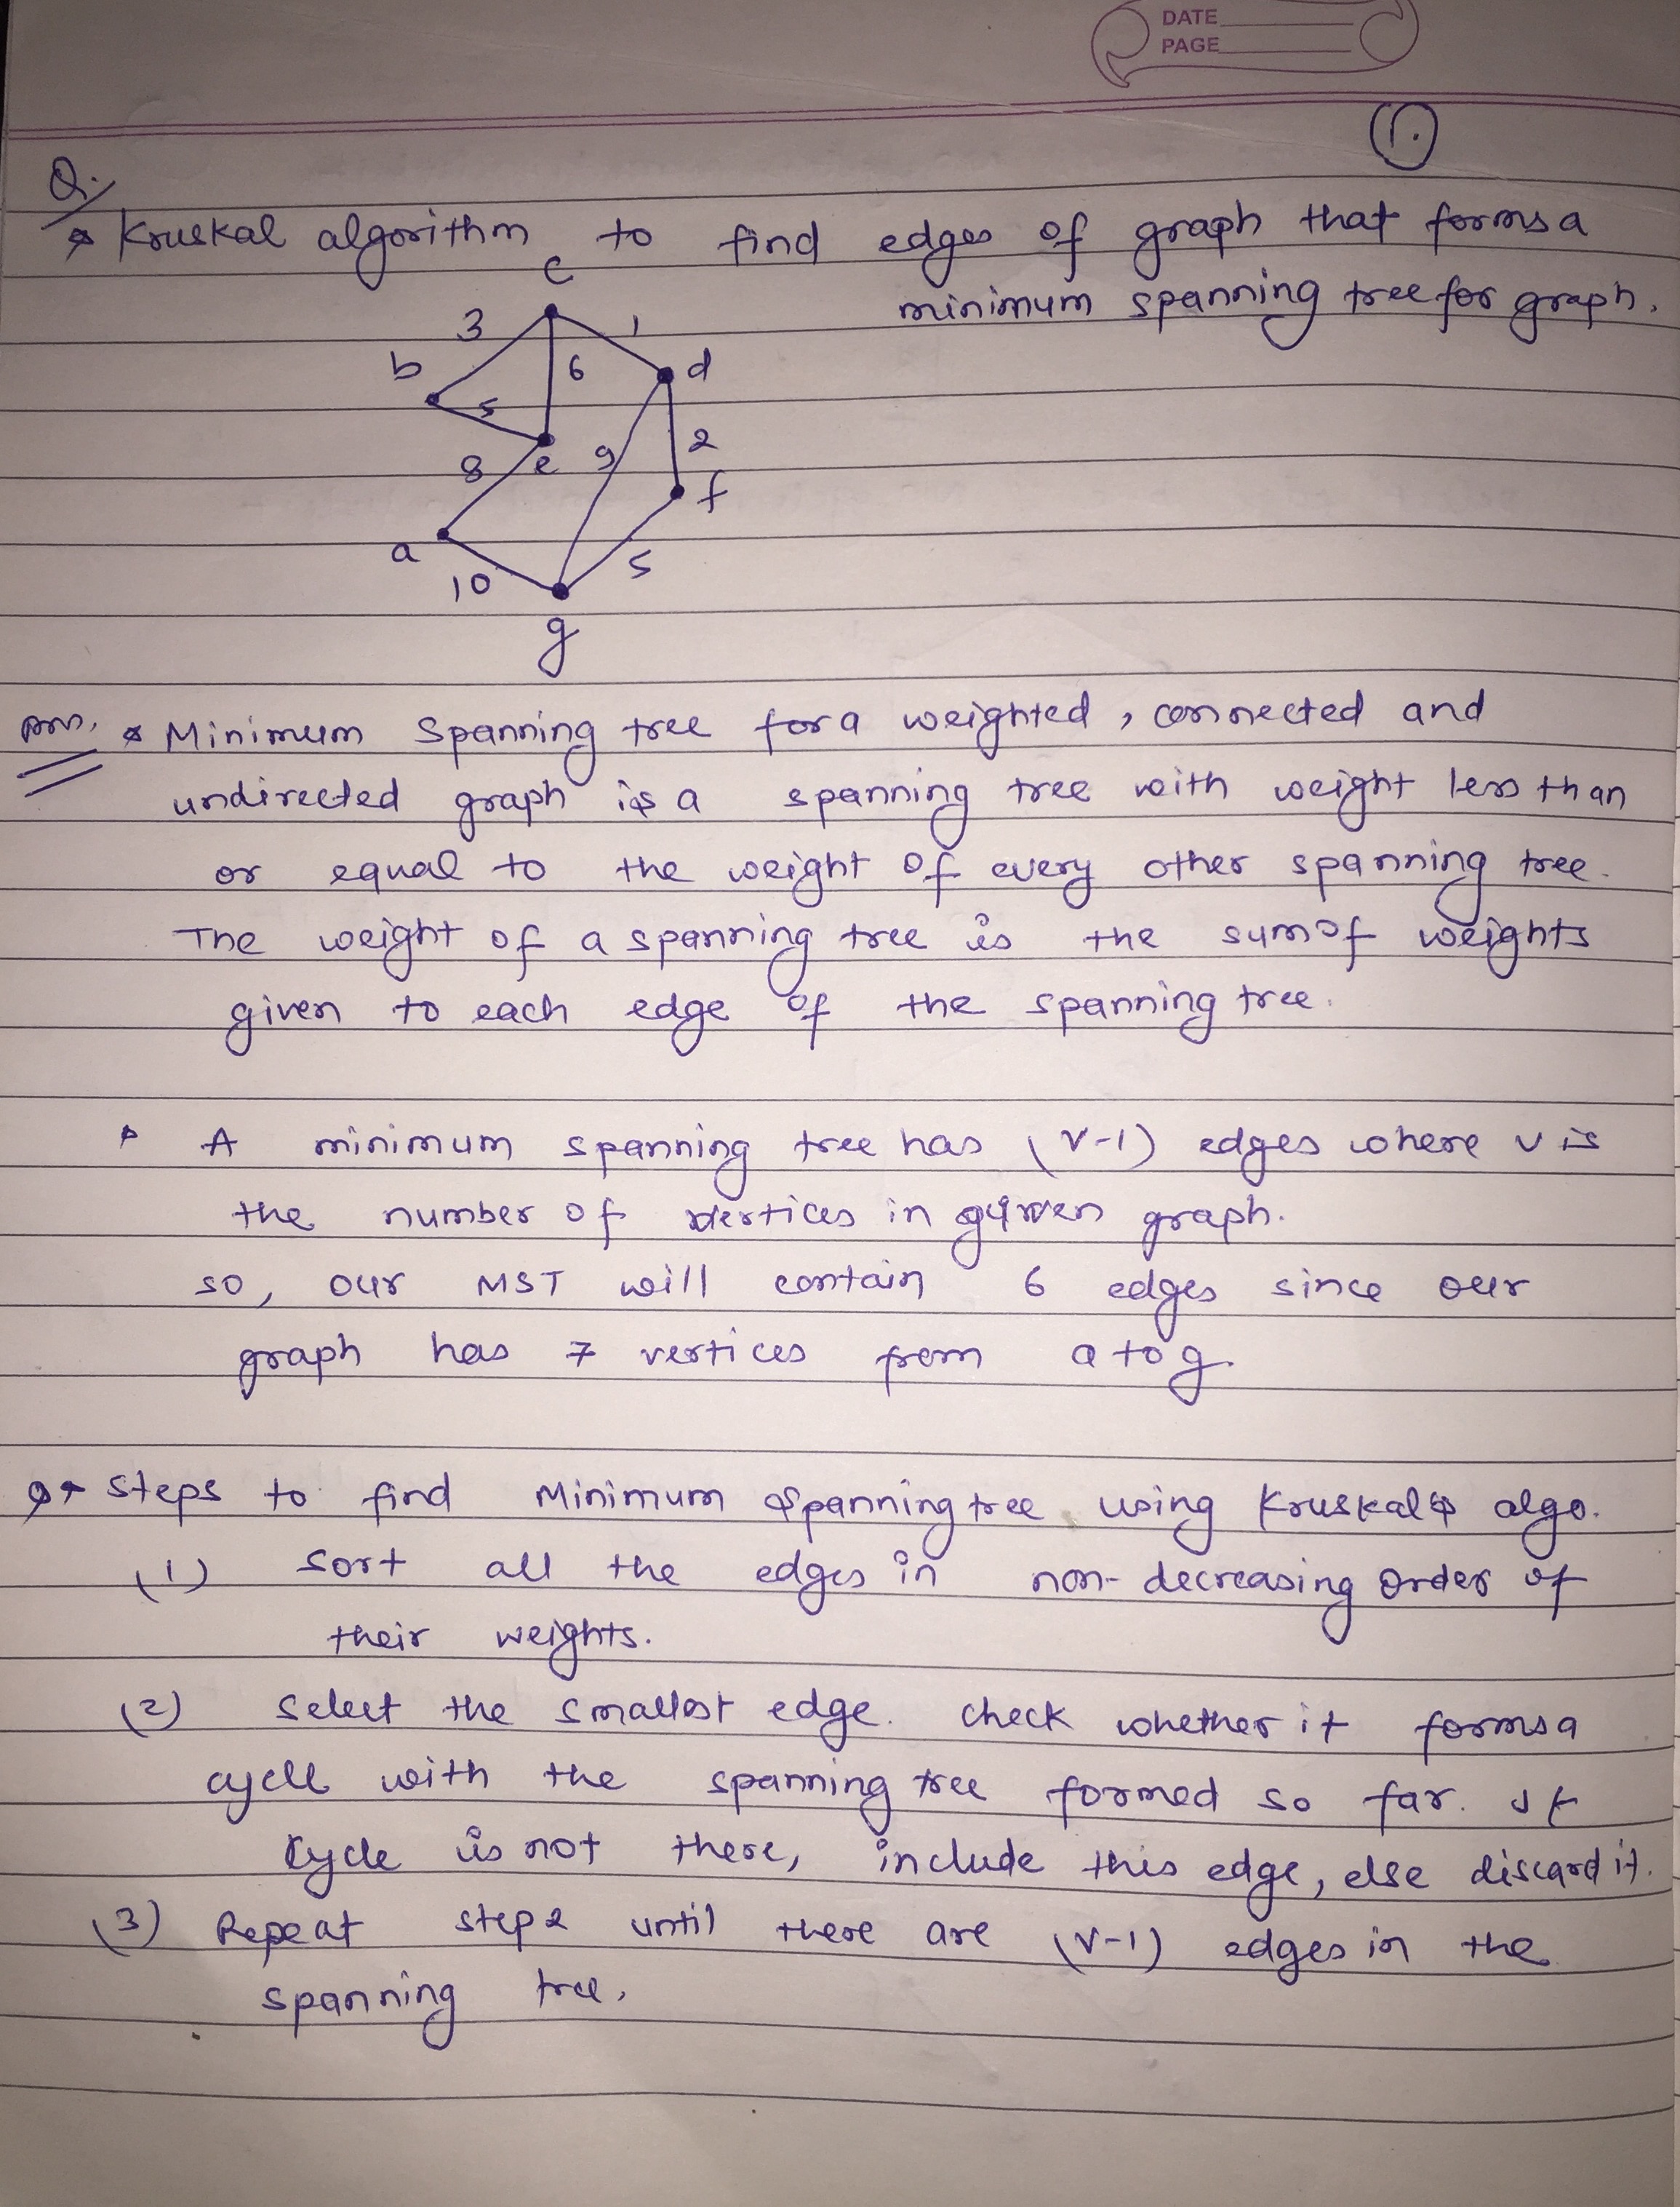 DATE
PAGE
1.
Q.
Kruskal algorithm to find edges of graph that forms a
minimum spanning tree for graph.
c
3 1
b 6 d
5
8 e 9 2
f
a 5
10
g
Ans. Minimum Spanning tree for a weighted, connected and
undirected graph is a spanning tree with weight less than
or equal to the weight of every other spanning tree.
The weight of a spanning tree is the sum of weights
given to each edge of the spanning tree.
A minimum spanning tree has (V-1) edges where v is
the number of vertices in given graph.
so, our MST will contain 6 edges since our
graph has 7 vertices from a to g.
Steps to find Minimum Spanning tree using Kruskal's algo.
(1) Sort all the edges in non-decreasing order of
their weights.
(2) Select the smallest edge. Check whether it forms a
cycle with the spanning tree formed so far. If
cycle is not there, include this edge, else discard it.
(3) Repeat step 2 until there are (V-1) edges in the
spanning tree.